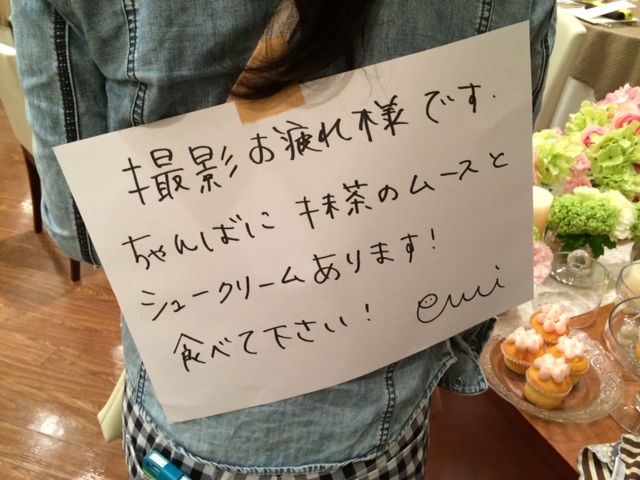 撮影お疲れ様です.
ちゃんばに 抹茶のムースと
シュークリームあります!
食べて下さい! emi